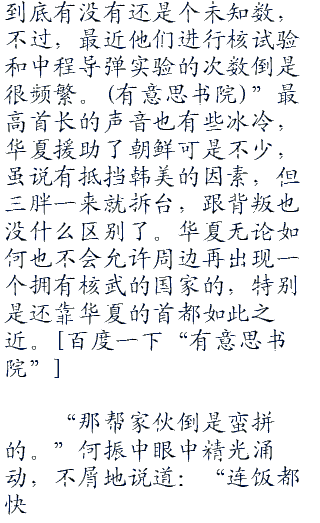 到底有没有还是个未知数，
不过，最近他们进行核试验
和中程导弹实验的次数倒是
很频繁。(有意思书院)”最
高首长的声音也有些冰冷，
华夏援助了朝鲜可是不少，
虽说有抵挡韩美的因素，但
三胖一来就拆台，跟背叛也
没什么区别了。华夏无论如
何也不会允许周边再出现一
个拥有核武的国家的，特别
是还靠华夏的首都如此之
近。[百度一下“有意思书
院”]
“那帮家伙倒是蛮拼
的。”何振中眼中精光涌
动，不屑地说道：“连饭都
快